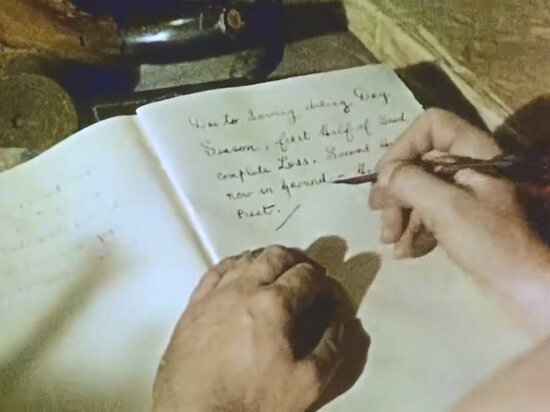 Due to Sowing during Dry
Season, first Half of Seed
complete Loss. Second
now in Ground
Best.